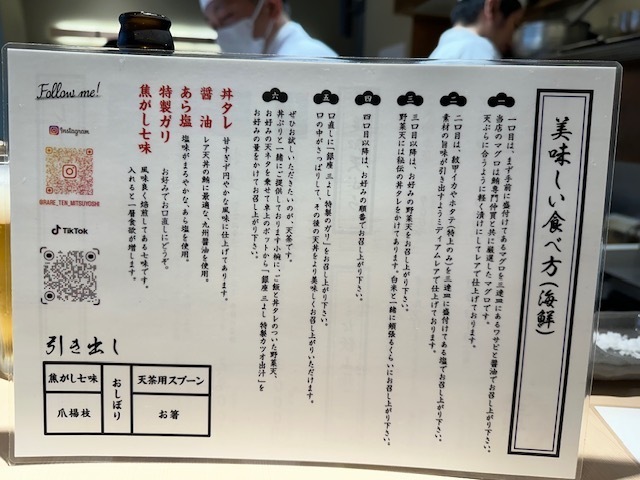 美味しい食べ方(海鮮)
一
一口目は、まず手前に盛付けてあるマグロを三連皿にあるワサビと醬油でお召し上がり下さい。
当店のマグロは鮪専門仲買と共に厳選したマグロです。
天ぷらに合うように軽く漬けにしてレアで仕上げております。
二
二口目は、紋甲イカやホタテ(特上のみ)を三連皿に盛付けてある塩でお召し上がり下さい。
素材の旨味が引き出すようミディアムレアで仕上げております。
三
三口目以降は、お好みの野菜天をお召し上がり下さい。
野菜天には秘伝の丼タレをかけてあります。白米と一緒に頬張るくらいにお召し上がり下さい。
四
四口目以降は、お好みの順番でお召し上がり下さい。
五
口直しに「銀座 三よし 特製のガリ」をお召し上がり下さい。
口の中がさっぱりして、その後の天丼をより美味しくお召し上がりいただけます。
六
ぜひお試しいただきたいのが、天茶です。
丼ぶりと一緒にご提供しております小椀に、ご飯と丼タレのついた野菜天、
お好みの天ネタを乗せて卓上のポットから「銀座 三よし 特製カツオ出汁」を
お好みの量をかけてお召し上がり下さい。
丼タレ 甘すぎず円やかな風味に仕上げてあります。
醬油 レア天丼の鮪に最適な、九州醬油を使用。
あら塩 塩味がまろやかな、あら塩を使用。
特製ガリ お好みでお口直しにどうぞ。
焦がし七味 風味良く焙煎してある七味です。
入れると一層食欲が増します。
Follow me!
Instagram
@RARE_TEN_MITSUYOSHI
TikTok
引き出し
焦がし七味
おしぼり
天茶用スプーン
爪楊枝
お箸